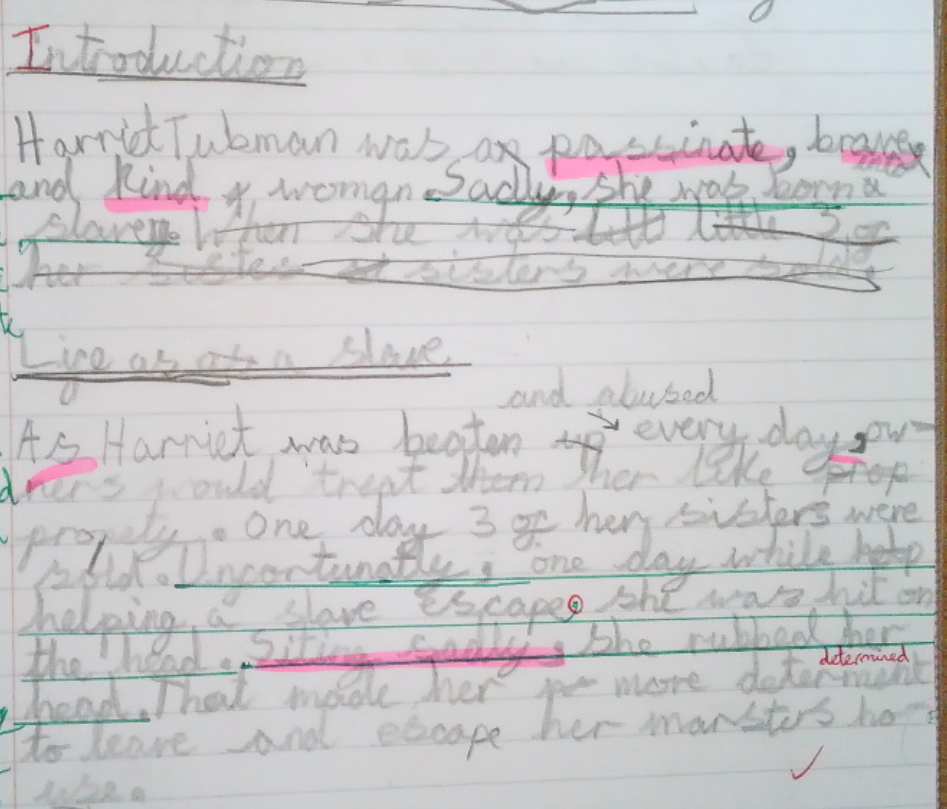 Introduction
Harriet Tubman was an passinate, brave,
and kind woman. Sadly, she was born a
slave. When she was little 3 of
her sister sisters were sold.
Life as of a slave
and abused
As Harriet was beaten up every day, ow-
ners would treat them her like prop
propety. One day 3 of her sisters were
sold. Unfortunatly, one day while help
helping a slave escape, she was hit on
the head. Siting sadly, she rubbed her
determined
head. That made her more determent
to leave and escape her marsters ho-
use.